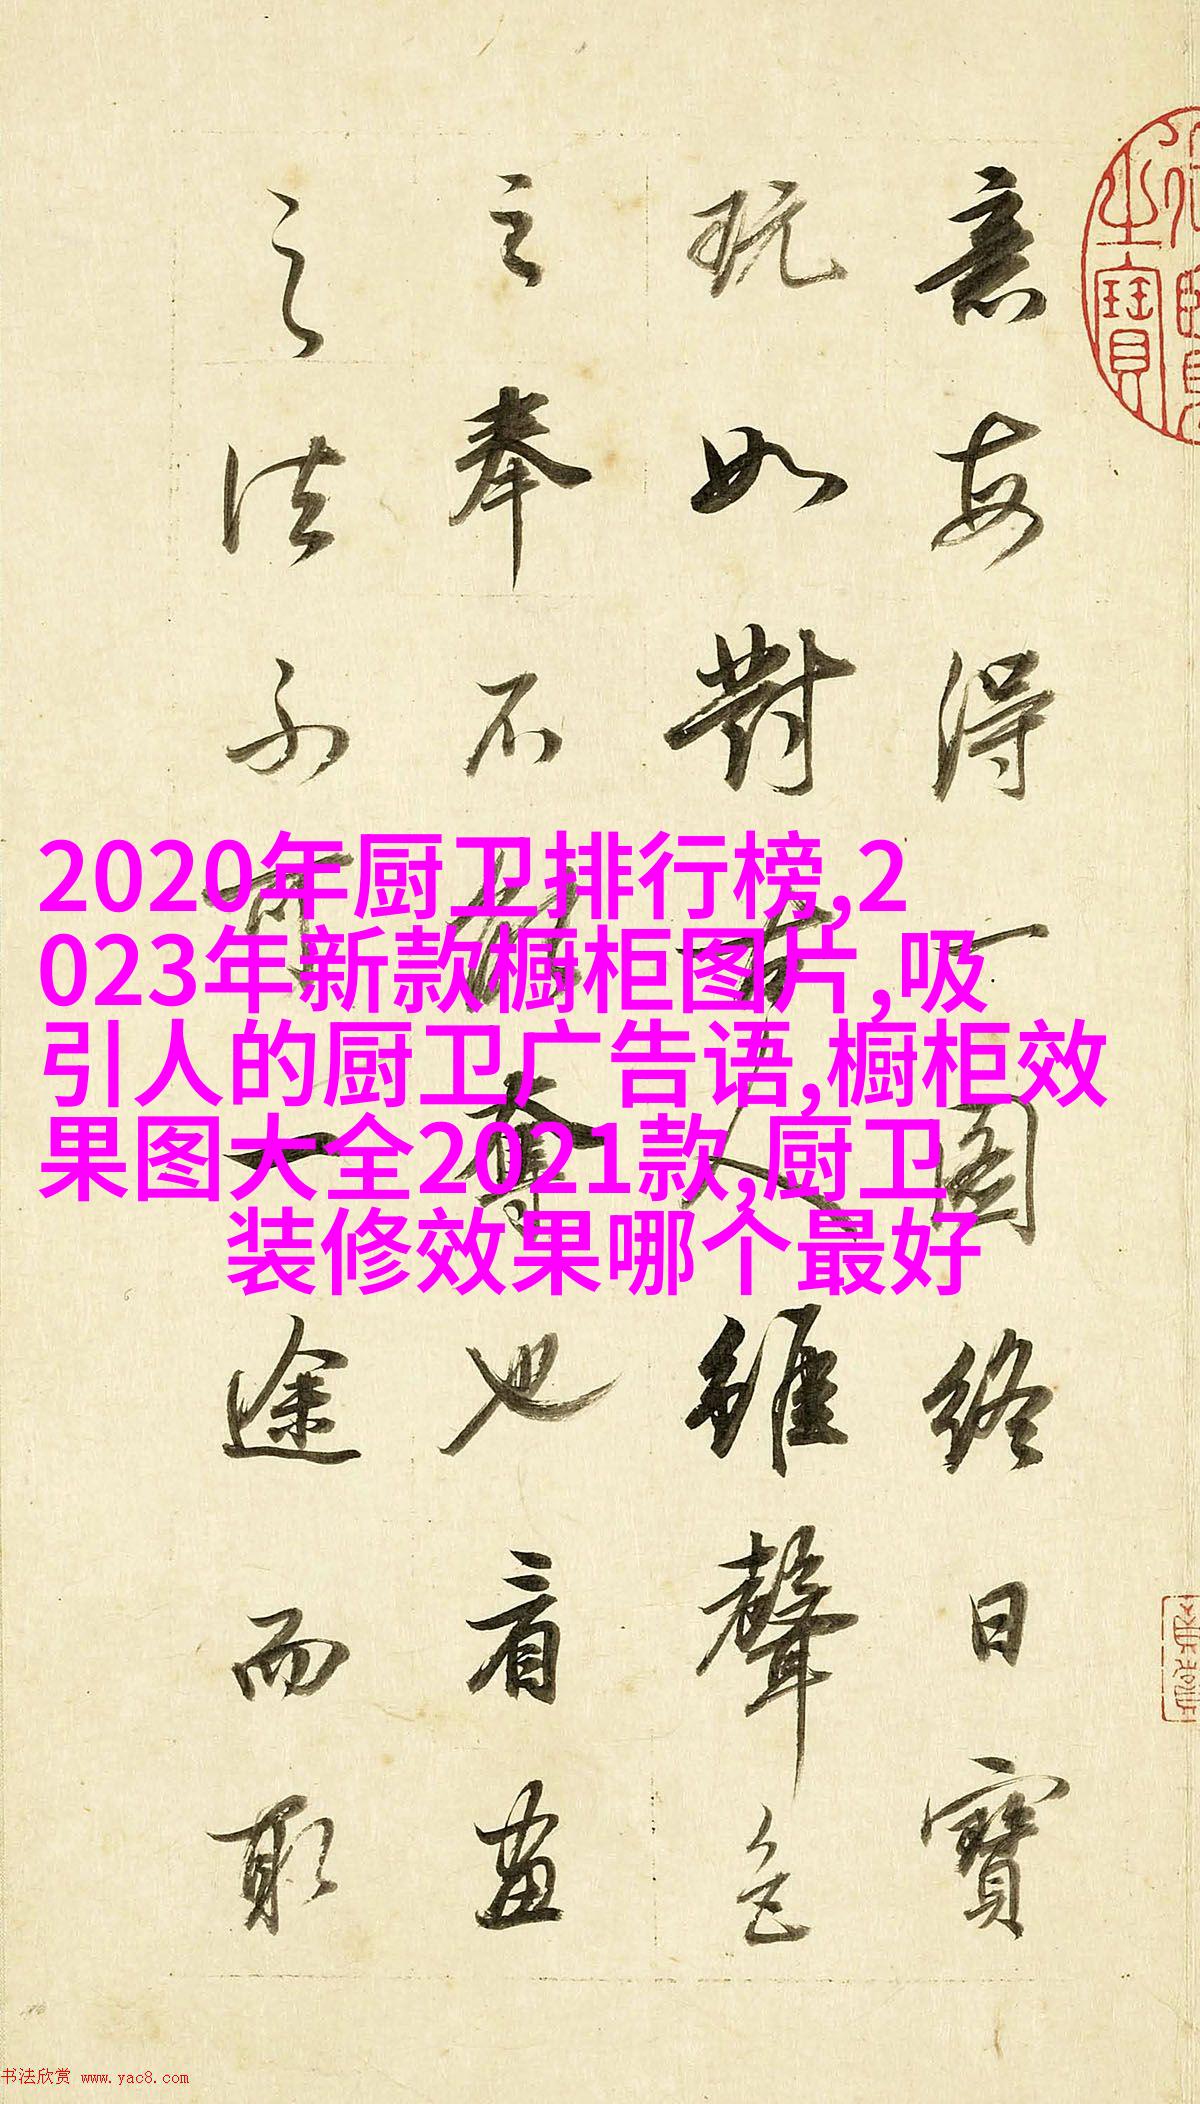 意每得一圖終日寶
玩如對古人雖聲色
之奉不能奪也看畫
之法不可一途而取
2020年厨卫排行榜,2
023年新款橱柜图片,吸
引人的厨卫广告语,橱柜效
果图大全2021款,厨卫
装修效果哪个最好
书法欣赏 www.yac8.com